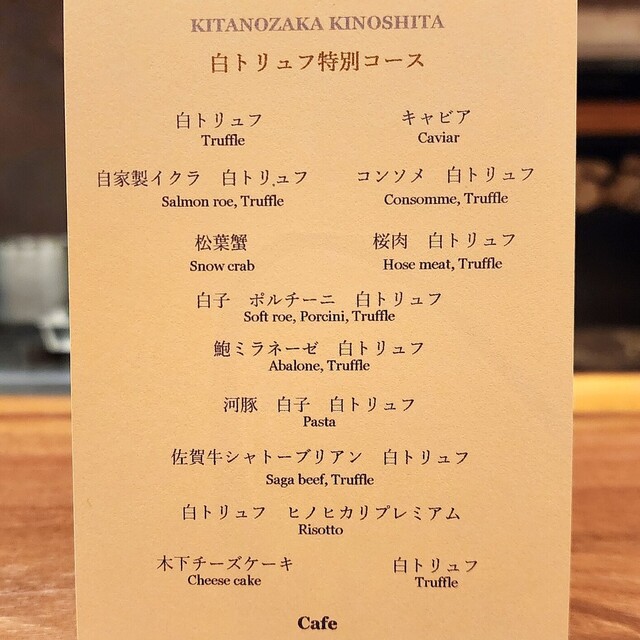 KITANOZAKA KINOSHITA
白トリュフ特別コース
白トリュフ キャビア
Truffle Caviar
自家製イクラ 白トリュフ コンソメ 白トリュフ
Salmon roe, Truffle Consomme, Truffle
松葉蟹 桜肉 白トリュフ
Snow crab Hose meat, Truffle
白子 ポルチーニ 白トリュフ
Soft roe, Porcini, Truffle
鮑ミラネーゼ 白トリュフ
Abalone, Truffle
河豚 白子 白トリュフ
Pasta
佐賀牛シャトーブリアン 白トリュフ
Saga beef, Truffle
白トリュフ ヒノヒカリプレミアム
Risotto
木下チーズケーキ 白トリュフ
Cheese cake Truffle
Cafe